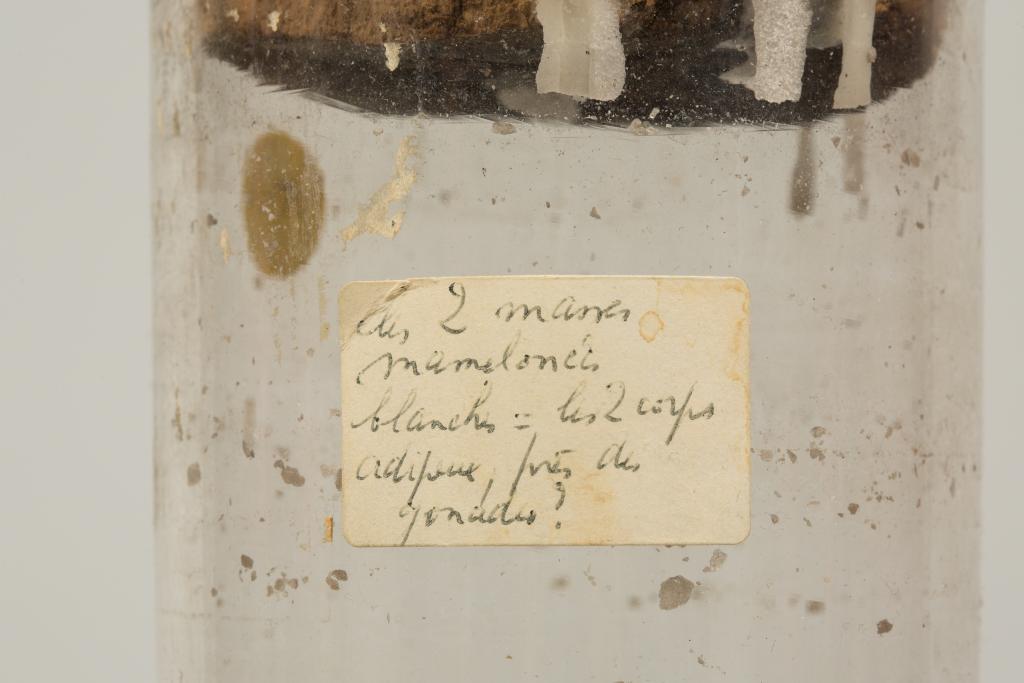 les 2 masses
mamelonées
blanches = les 2 corps
adipeux, près des
gonades?